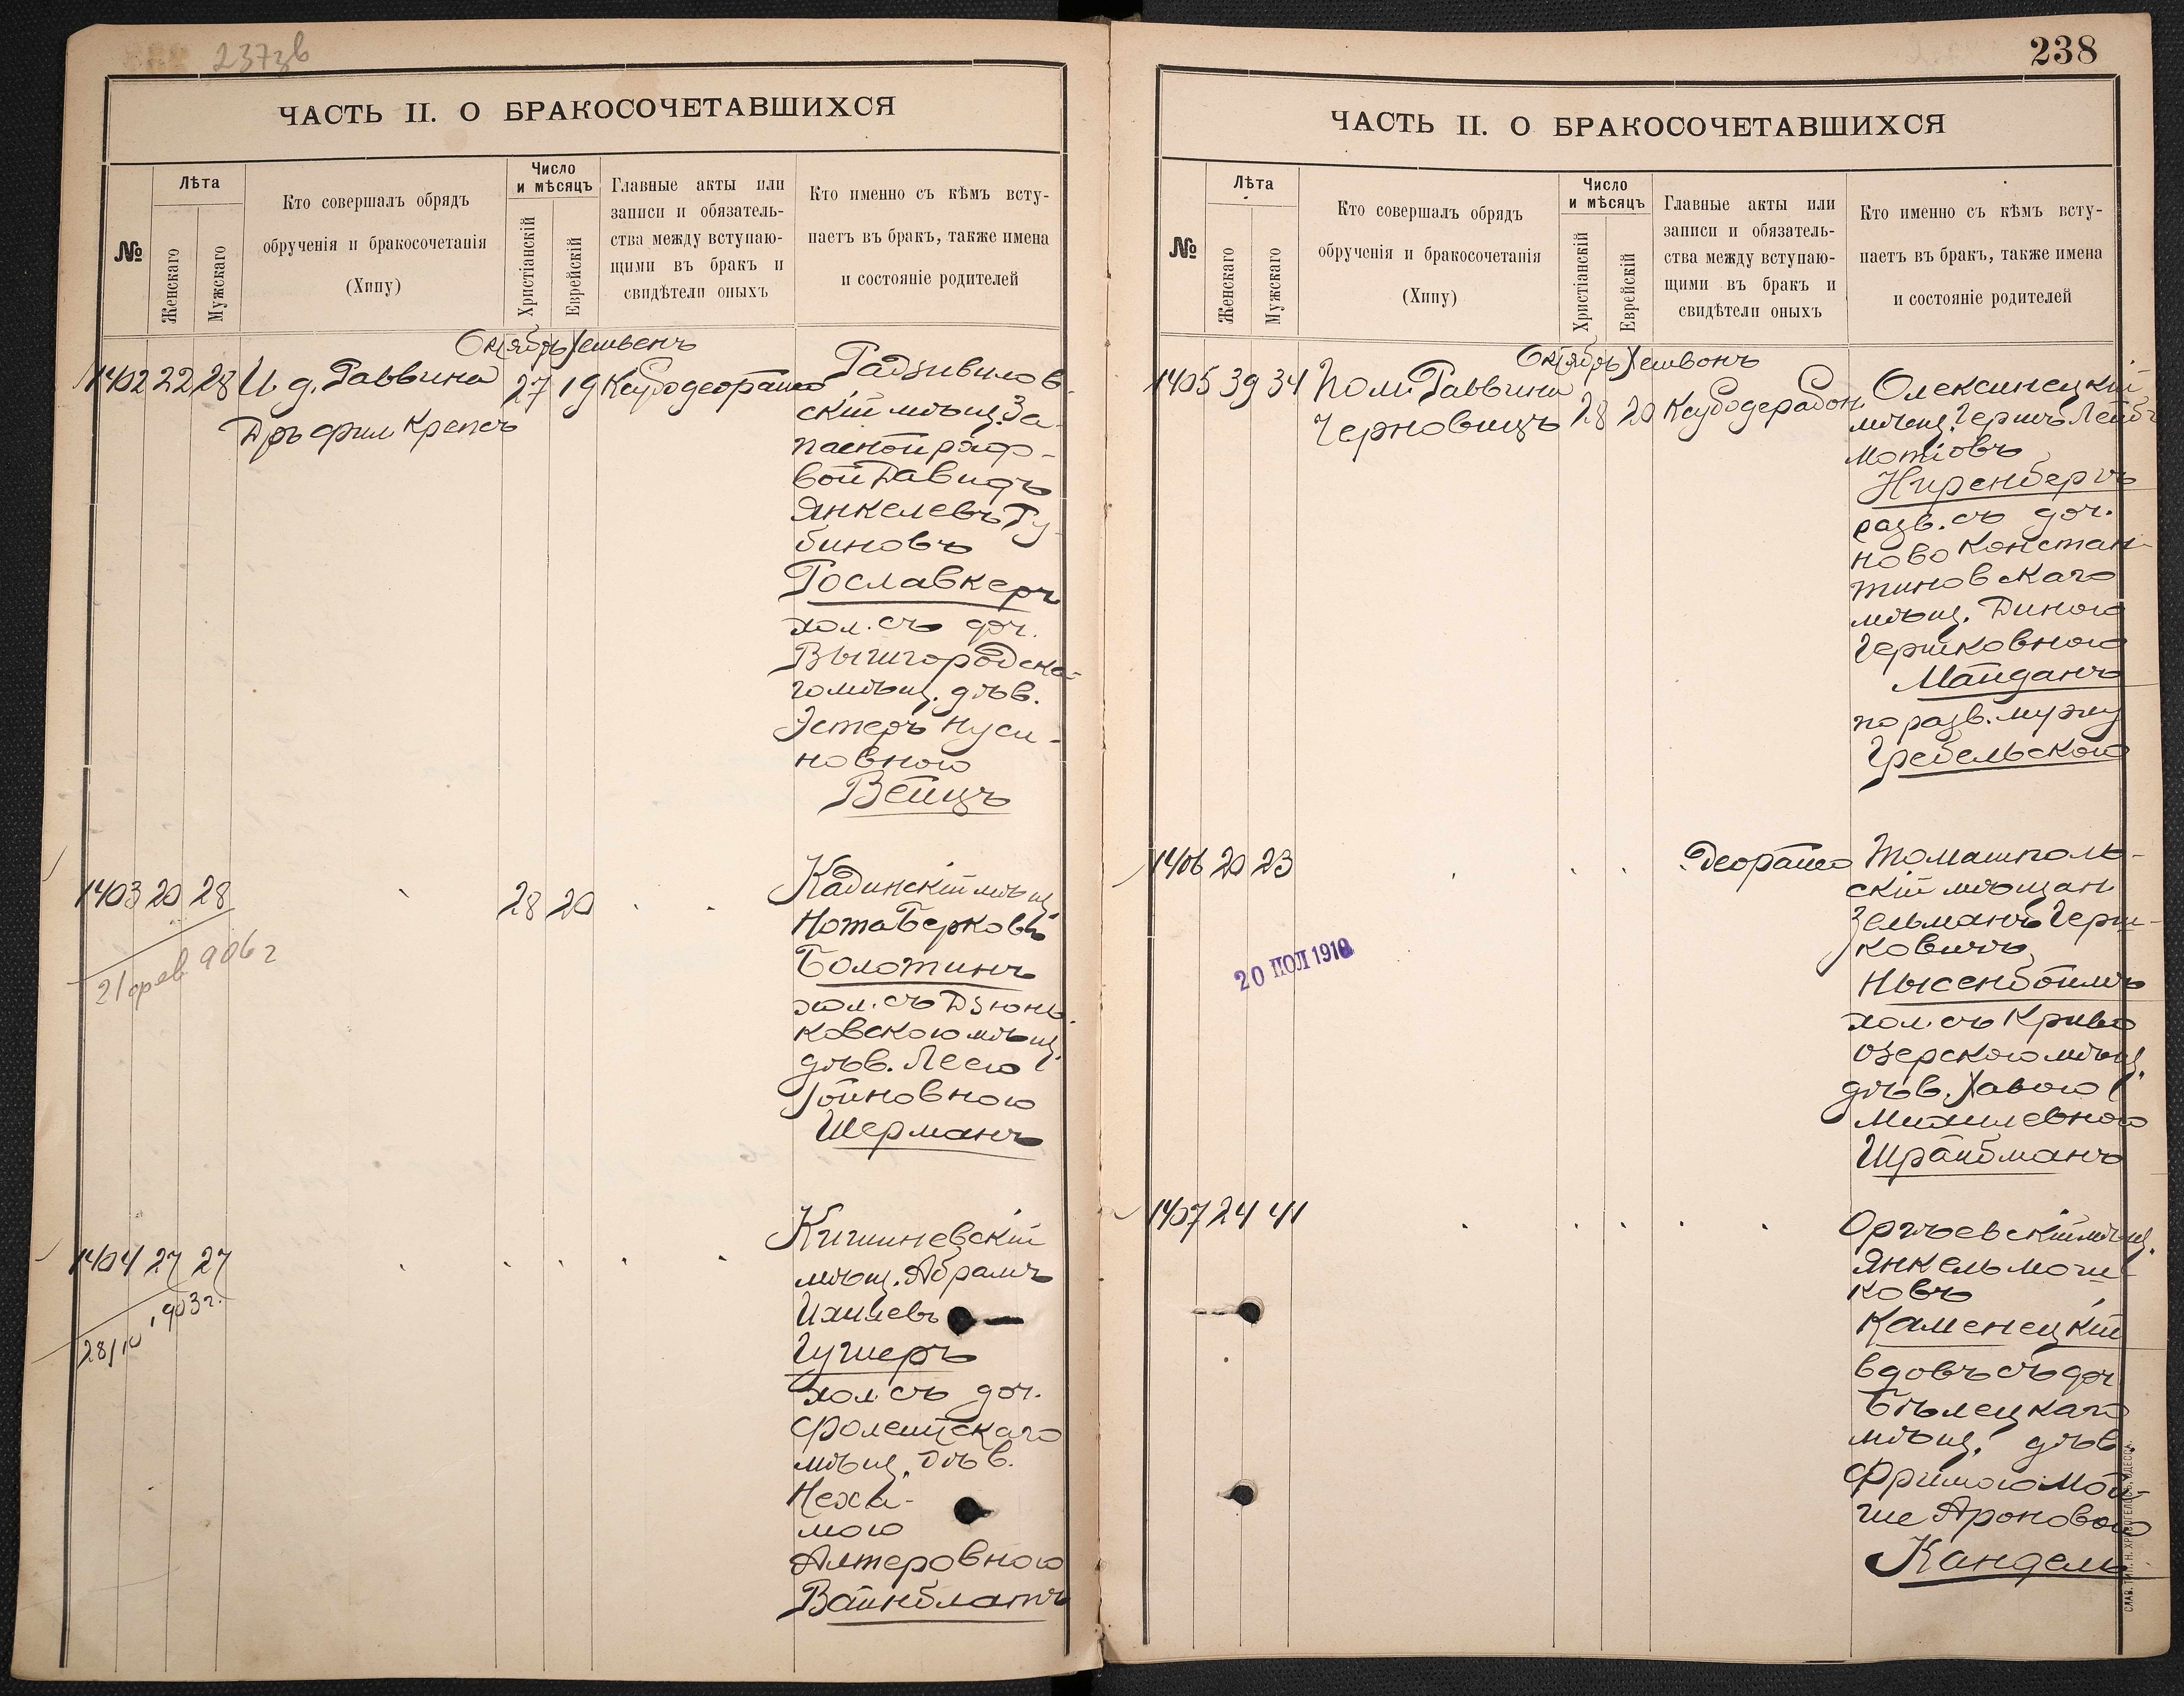 237зв
ЧАСТЬ II. О БРАКОСОЧЕТАВШИХСЯ
№
Лѣта
Женскаго
Мужскаго
Кто совершалъ обрядъ
обрученія и бракосочетанія
(Хипу)
Число
и мѣсяцъ
Христіанскій
Еврейскій
Главные акты или
записи и обязатель-
ства между вступаю-
щими въ бракъ и
свидѣтели оныхъ
Кто именно съ кѣмъ всту-
паетъ въ бракъ, также имена
и состояніе родителей
Октябрь Хешвенъ
1402 22 28 И д. Раввина 27 19
Дръ фил Крепсъ
Радзивилов
скій мѣщ. За
пасной рядо-
вой Давидъ
Янкелевъ Ру
биновъ
Рославкеръ
хол. съ доч.
Вышгородска-
го мѣщ. дѣв.
Эстеръ Нуси-
новною
Вейцъ
1403 20 28 28 20
21 фев 906 г
Кадинскій мѣщ
Нота Берковъ
Болотинъ
хол. съ Дзюнь
ковскою мѣщ.
дѣв. Леею
Іойновною
Шерманъ
1404 27 27
28/10 1903 г.
Кишиневскій
мѣщ. Абрамъ
Ихилевъ
Гушеръ
хол. съ доч.
Фолештскаго
мѣщ. дѣв.
Неха-
мою
Алтеровною
Вайнблатъ
238
ЧАСТЬ II. О БРАКОСОЧЕТАВШИХСЯ
№
Лѣта
Женскаго
Мужскаго
Кто совершалъ обрядъ
обрученія и бракосочетанія
(Хипу)
Число
и мѣсяцъ
Христіанскій
Еврейскій
Главные акты или
записи и обязатель-
ства между вступаю-
щими въ бракъ и
свидѣтели оныхъ
Кто именно съ кѣмъ всту-
паетъ въ бракъ, также имена
и состояніе родителей
Октябрь Хешвонъ
1405 39 34 Пом. Раввина 28 20
Черновицъ
Олексинецкій
мѣщ. Гершъ Лейбъ
Мотіовъ
Ниренбергъ
разв. съ доч.
Ново Констан-
тиновскаго
мѣщ. Диною
Гершковною
Майданъ
по разв. мужу
Гребельскою
1406 20 23
Томашполь-
скій мѣщан.
Зельманъ Герш-
ковичъ
Нысенбоймъ
хол. съ Криво
озерскою мѣщ.
дѣв. Хавою
Михилевною
Шрайбманъ
20 ПОЛ 1910
1407 24 41
Оргѣевскій мѣщ.
Янкель Мош-
ковъ
Каменецкій
вдовъ съ доч
Бѣлецкаго
мѣщ. дѣв.
Фримою Мой-
ше Ароновою
Кандель